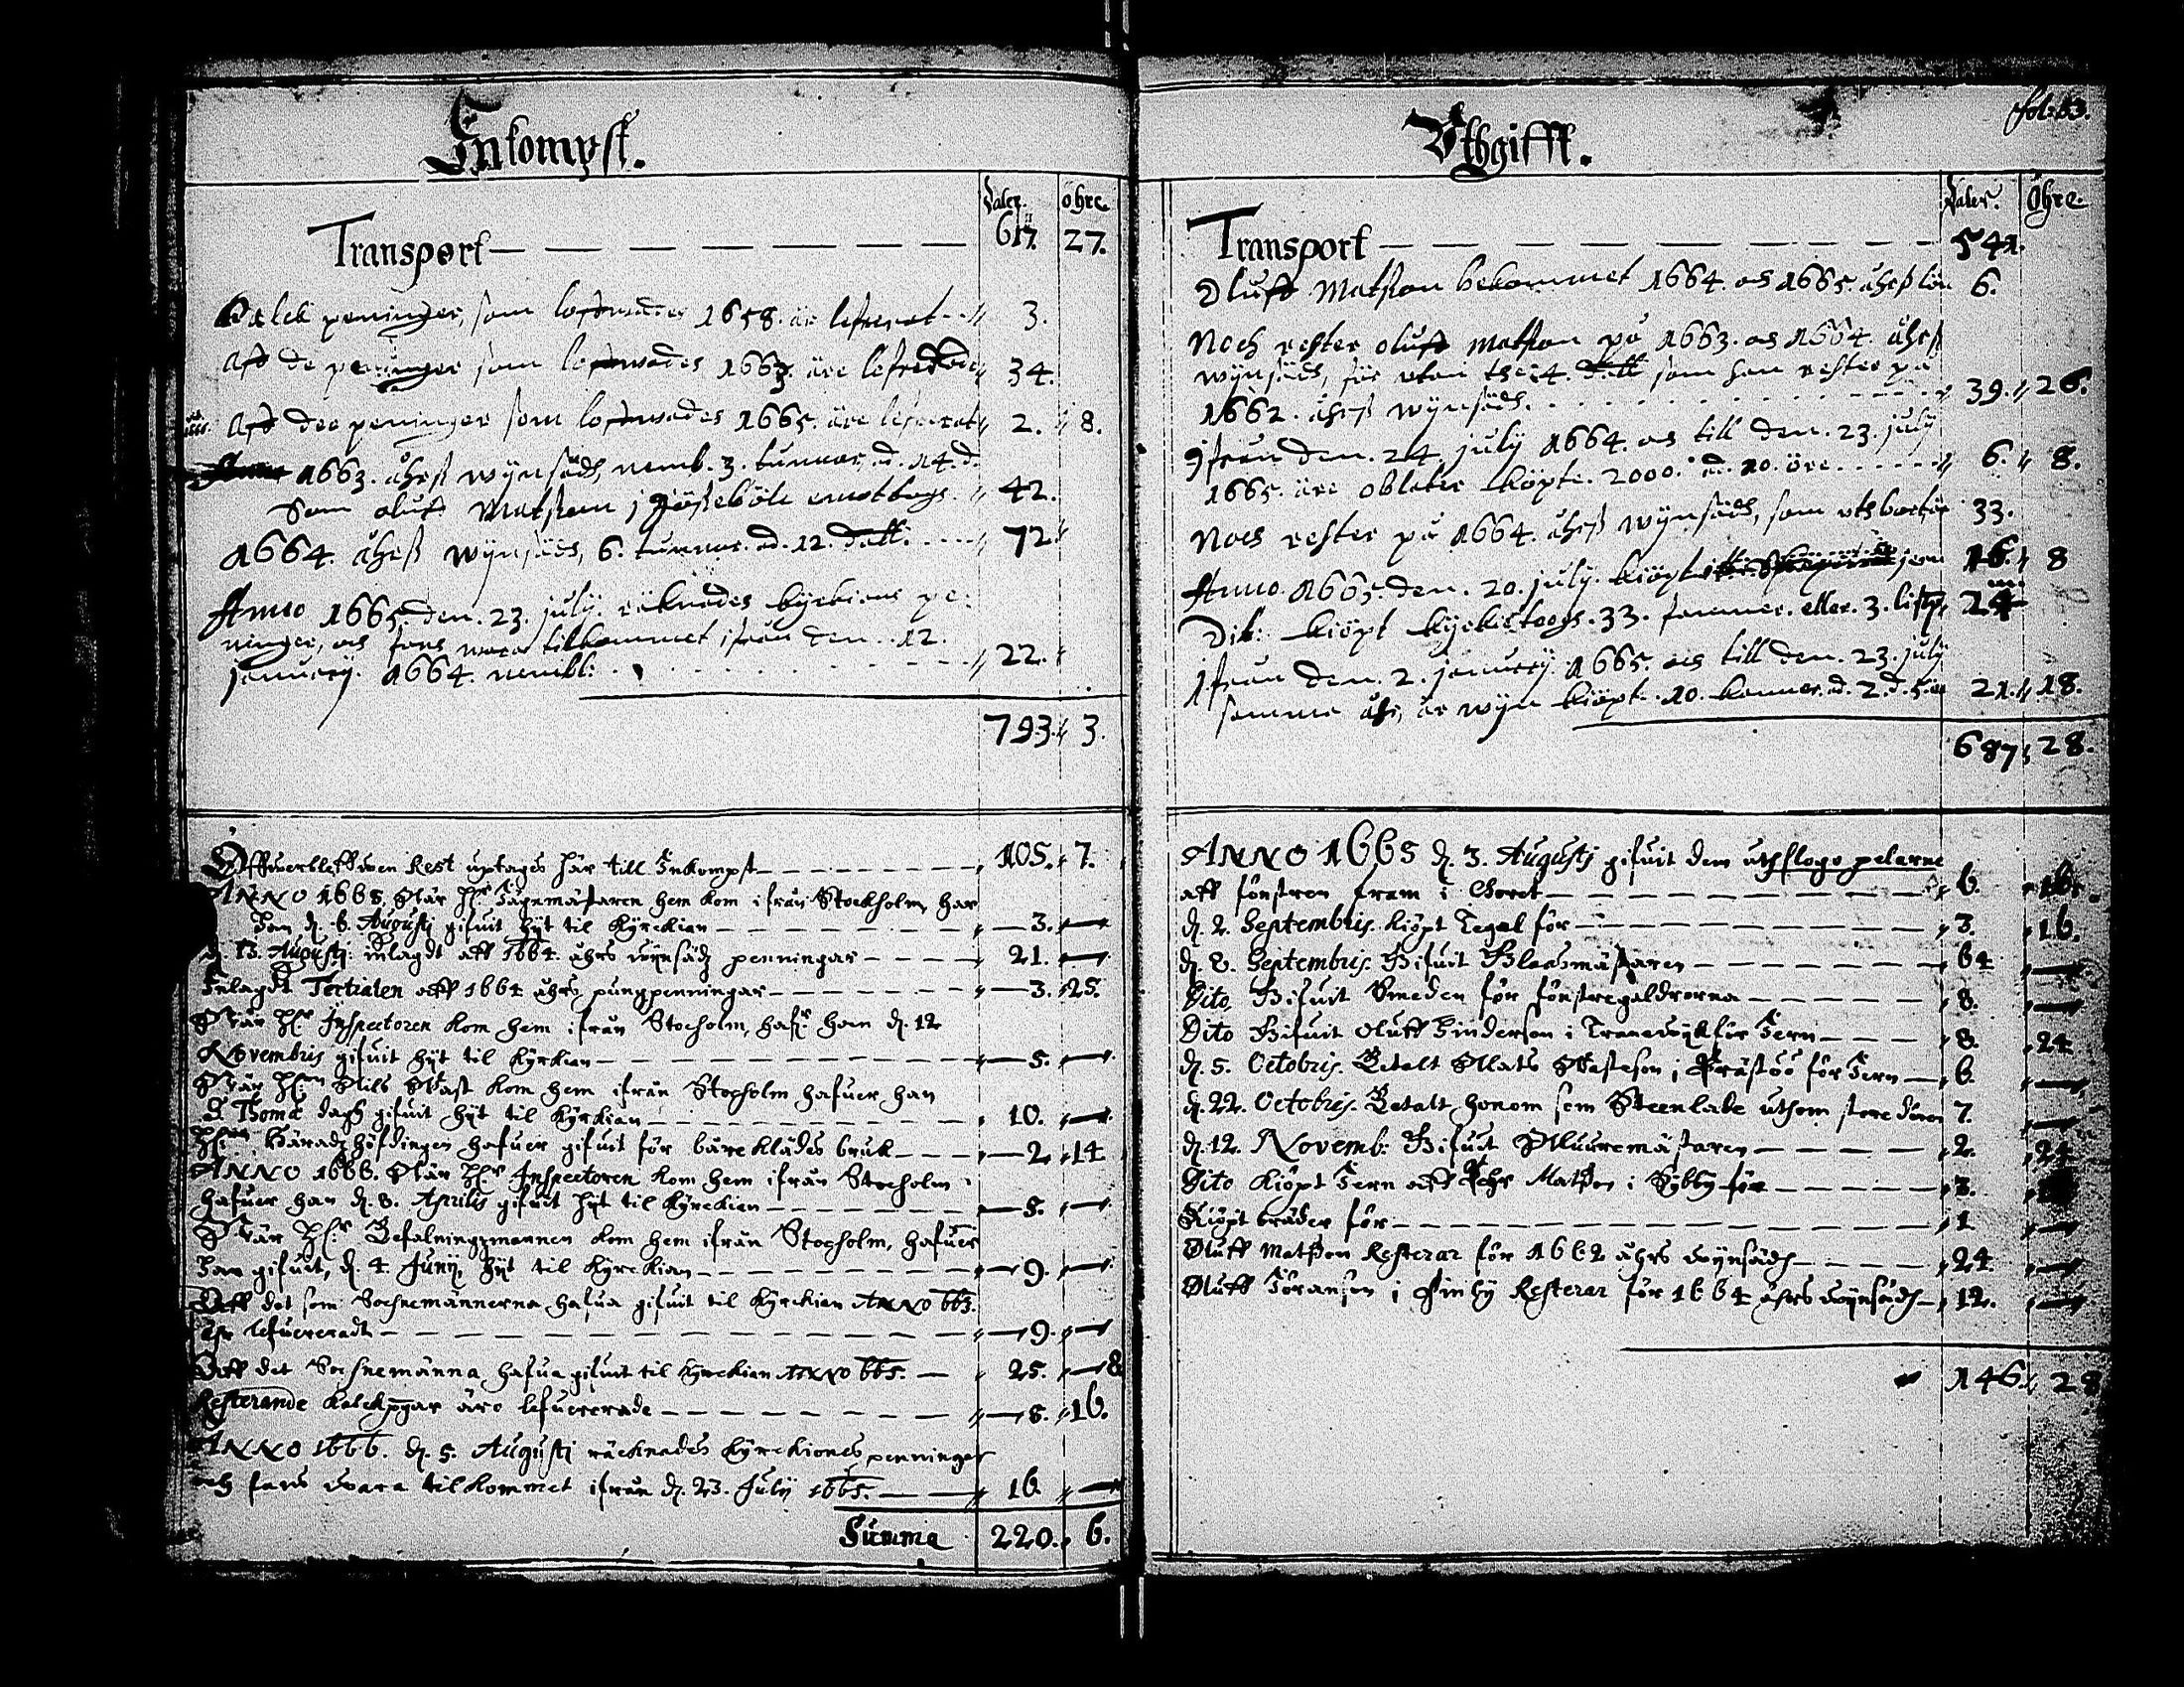 Inkompst.
Daler. Öhre.
Transport 617. 27.
Kalck peninger, som lofwades 1658. är lefrerat 3.
Aff de peninger som lofwades 1663. äre lefrerade 34.
Aff dee peninger som lofwades 1665. äre lefrerat 2. 8.
1663. åhrß wijnsädh, nemb. 3. tunnor, ad. 14. d.
Som oluff Matsson j emottogh. 42.
1664. åhrß wijnsädh, 6. tunnor. ad. 12. dall. 72
Anno 1665. den. 23. july. räknades kyrkions pe-
ninger, och fans wara tilkommet ifrån den. 12.
january. 1664. nembl: 22.
793. 3.
Öffwerbleffwen Rest uptages här till Inkompst 105. 7.
ANNO 1665. När Hr Jägmästaren hem kom ifrån Stockholm, har
han d. 6. Augusti gifuit hijt til Kyrckian 3.
d. 13. Augusti: inlagdt aff 1664 åhrs wijnsädz penningar 21.
Inlagdt Tertialen aff 1664 åhrs pungpenningar 3. 25.
När Hr Inspectoren kom hem ifrån Stocholm, hafr han d. 12
Novembris gifuit hijt til Kyrkian 5.
När Nils kom hem ifrån Stocholm hafuer han
S. Thomæ dagh gifuit hijt til Kyrkian 10.
Häradzhöfdingen hafuer gifuit för båreklädes bruk 2. 14
ANNO 1666. När Hr Inspectoren kom hem ifrån Stocholm
hafuer han d. 8. Aprilis gifuit hijt til Kyrckian 5.
När Hr Befalningzmannen kom hem ifrån Stocholm, hafuer
han gifuit, d. 4 Junij, hijt til Kyrckian 9.
Aff det som Sochnemännerna hafua gifuit til Kyrckian ANNO 663.
ähr lefuereradt 9.
Aff det Sochnemänna hafua gifuit til Kyrckian ANNO 665. 25. 8
Resterande kalckpgar äro lefuererade 8. 16.
ANNO 1666. d. 5. Augusti räcknades Kyrckiones penningar
och fans wara tilkommet ifrån d. 23. July 1665. 16
Summa 220. 6.
fol: 63.
Uthgifft.
Daler. Öhre.
Transport 541.
Oluff Matsson bekommet 1664. och 1665. åhrß lön 6.
Noch rester oluff Matsson på 1663. och 1664. åhrß
wijnsädh, för utan the 24. dall som han rester på
1662. åhrß wijnsädh. 39. 26.
Ifrån den. 24. july 1664. och till den. 23. july
1665. äre oblater köpte. 2000. ad. 10. öre. 6. 8.
Noch rester på 1664. åhrß wijnsädh, som 33.
Anno. 1665. den. 20. july. kiöpt jern 16. 8
Dito: kiöpt kyrkietaags. 33. famner. eller. 3. 24
Ifrån den. 2. january. 1665. och till den. 23. july
samma åhr, är wijn kiöpt. 10. kannor. ad. 2. d. 5. ör 21. 18.
687. 28.
ANNO 1665 d. 3. Augusti gifuit dem uthslogo pelarne
aff fönstren fram i Coret 6. 16.
d. 2. Septembris. kiöpt Tegel för 3. 16.
d. 8. Septembris. Gifuit Glaasmästaren 64
Dito, Gifuit Smeden för fönstregaldrorna 8.
Dito Gifuit Oluff Hinderson i Tranewijk för Jern 8. 24
d. 5. Octobris. Betalt Mats i Prästöö för Jern 6.
d. 22. Octobris. Betalt honom som Steenlade uthom store dören 7.
d. 12. Novemb: Gifuit Muuremästaren 2. 24
Dito kiöpt Jern aff Pehr Matson i Sybby för 3.
Kiöpt bräder för 1
Oluff Matson Resterar för 1662 åhrs wijnsädh 24
Oluff Jöranson i Finby Resterar för 1664 åhrs wijnsädh 12.
146. 28